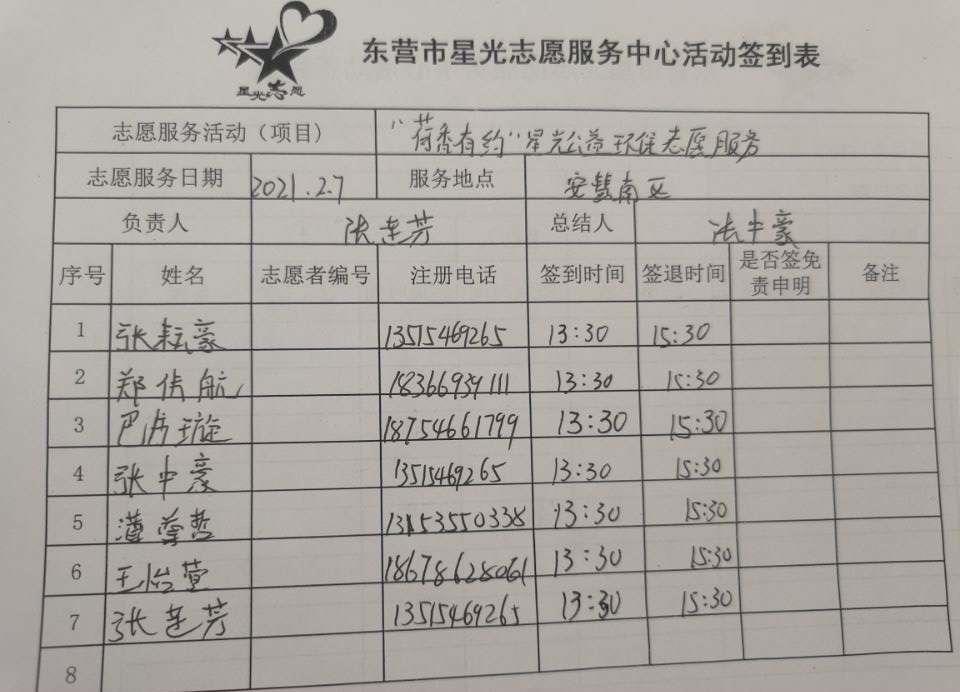 星光志愿
东营市星光志愿服务中心活动签到表
志愿服务活动（项目） “荷香有约”星光公益环保志愿服务
志愿服务日期 2021.2.7 服务地点 安慧南区
负责人 张莲芳 总结人 张中豪
序号 姓名 志愿者编号 注册电话 签到时间 签退时间 是否签免责申明 备注
1 张耘豪 13515469265 13:30 15:30
2 郑倩航 18366939111 13:30 15:30
3 巴卢璇 18754661799 13:30 15:30
4 张中豪 13515469265 13:30 15:30
5 13153550338 13:30 15:30
6 王怡萱 18678628061 13:30 15:30
7 张莲芳 13515469265 13:30 15:30
8